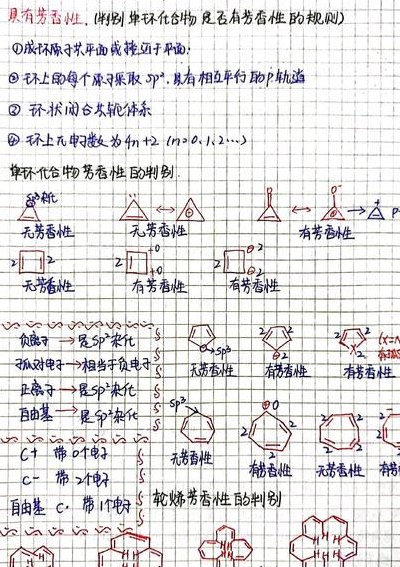 具有芳香性.(判别单环化合物是否有芳香性的规则)
①成环原子共平面或接近于平面.
②环上的每个原子采取sp²,具有相互平行的p轨道
③环状闭合共轭体系
④环上π电子数为4n+2 (n=0,1,2...)
单环化合物芳香性的判别.
sp³杂化
无芳香性 无芳香性 有芳香性
2 2 2 +0 +0 2 ⊖2 ⊖2
无芳香性 有芳香性 有芳香性
负离子→是sp²杂化
孤对电子→相当于负电子
正离子→是sp²杂化
自由基→是sp²杂化
C+ 带0个电子
C- 带2个电子
自由基 C· 带1个电子
sp³ 2 2 ⊖2 2 2 X 2
无芳香性 有芳香性 有芳香性
sp³ ⊕0 2 2 2
无芳香性 有芳香性 无芳香性
轮烯芳香性的判别
H H H H H H